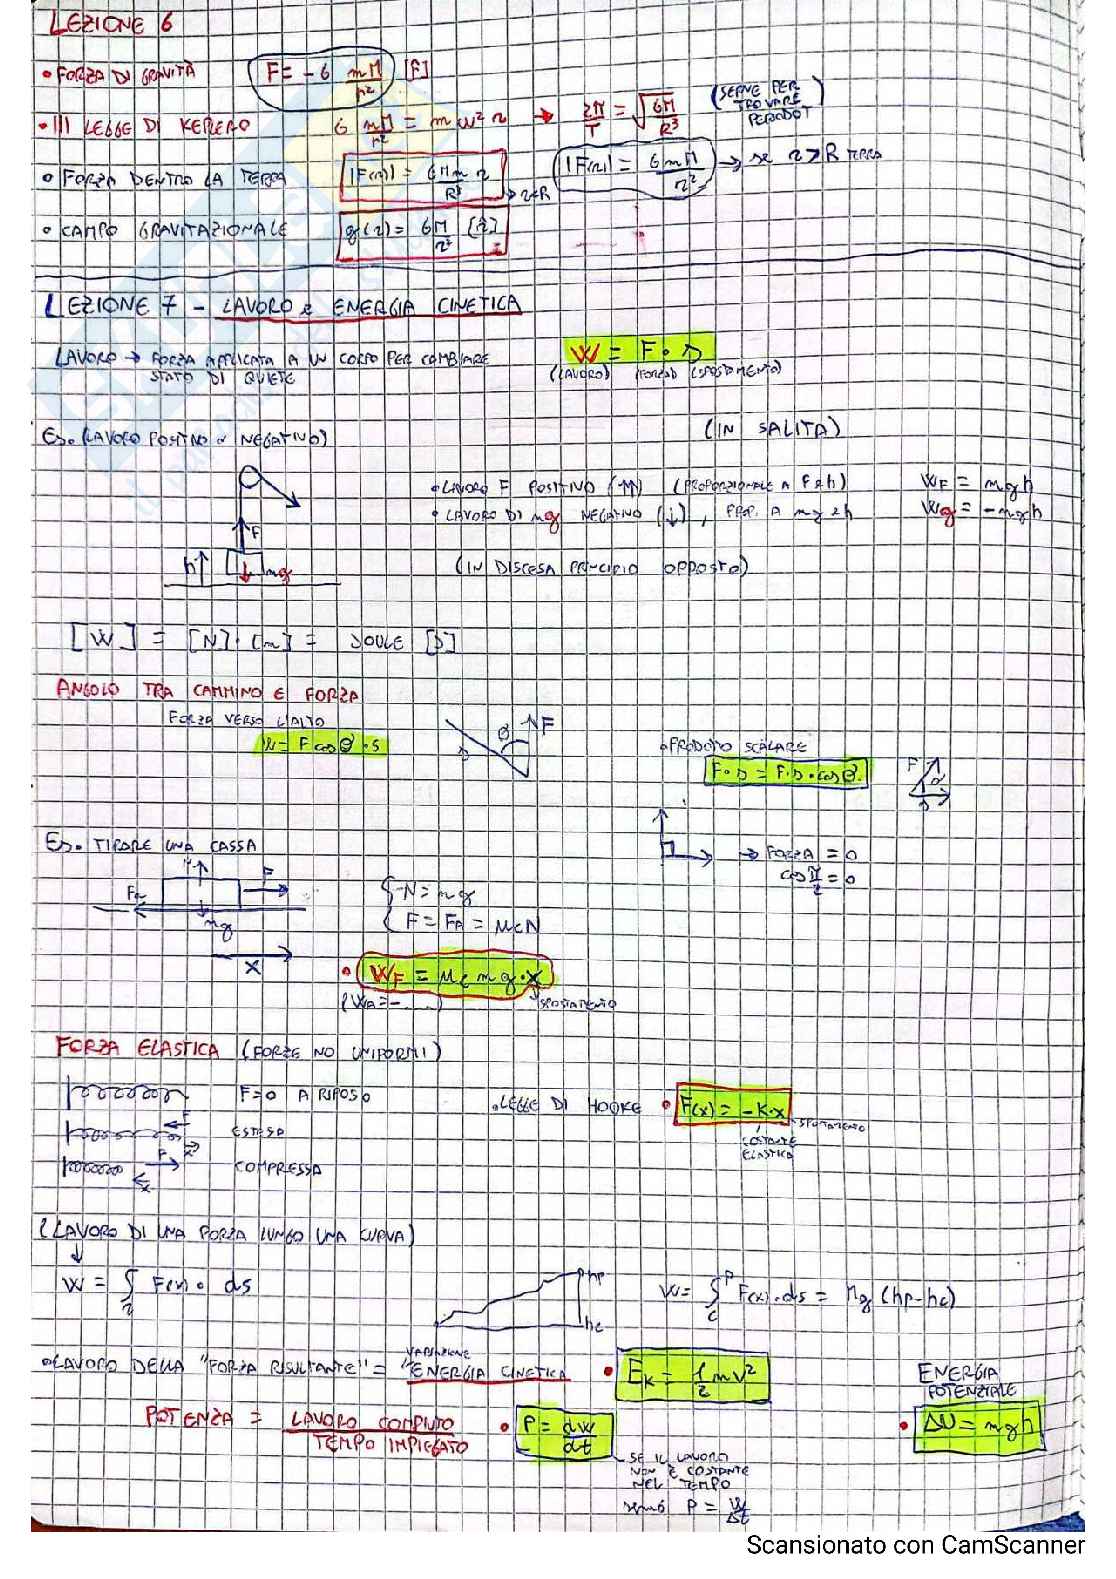 LEZIONE 6
• FORZA DI GRAVITÀ F = -G mM/r² [r̂]
• III LEGGE DI KEPLERO G mM/r² = m ω² r → 2π/T = √(GM/R³) (SERVE PER TROVARE PERIODO T)
• FORZA DENTRO LA TERRA |F(r)| = GMm r/R³ → r<R |F(r)| = GmM/r² → se r > R TERRA
• CAMPO GRAVITAZIONALE g(r) = GM/r² [r̂]
LEZIONE 7 - LAVORO e ENERGIA CINETICA
LAVORO → FORZA APPLICATA A UN CORPO PER CAMBIARE STATO DI QUIETE W = F · s
(LAVORO) (FORZA) (SPOSTAMENTO)
Es. (LAVORO POSITIVO o NEGATIVO) (IN SALITA)
• LAVORO F POSITIVO (↑↑) (PROPORZIONALE A F e h) WF = mgh
• LAVORO DI mg NEGATIVO (↓), PROP. A mg e h Wg = -mgh
F
h mg
(IN DISCESA PRINCIPIO OPPOSTO)
[W] = [N]·[m] = JOULE [J]
ANGOLO TRA CAMMINO E FORZA
FORZA VERSO L'ALTO
W = F cos θ · s
θ F
s
• PRODOTTO SCALARE
F · s = F·s·cos θ
F
θ
s
→ FORZA = 0
cos π/2 = 0
Es. TIRARE UNA CASSA
N F
FA
mg
x
{ N = mg
F = FA = μcN
• WF = μc mg · x
(WA = - ...) SPOSTAMENTO
FORZA ELASTICA (FORZE NO UNIFORMI)
F=0 A RIPOSO
F ESTESA
x
F COMPRESSA
x
• LEGGE DI HOOKE • F(x) = -K·x
SPOSTAMENTO
COSTANTE ELASTICA
(LAVORO DI UNA FORZA LUNGO UNA CURVA)
W = ∫ F(r) · ds
hp
hc
W = ∫ F(x) · ds = mg (hp - hc)
• LAVORO DELLA "FORZA RISULTANTE" = VARIAZIONE "ENERGIA CINETICA • EK = 1/2 mv²
ENERGIA POTENZIALE
• ΔU = mgh
POTENZA = LAVORO COMPIUTO / TEMPO IMPIEGATO • P = dW/dt
SE IL LAVORO
NON È COSTANTE
NEL TEMPO
sennò P = W/Δt
Scansionato con CamScanner